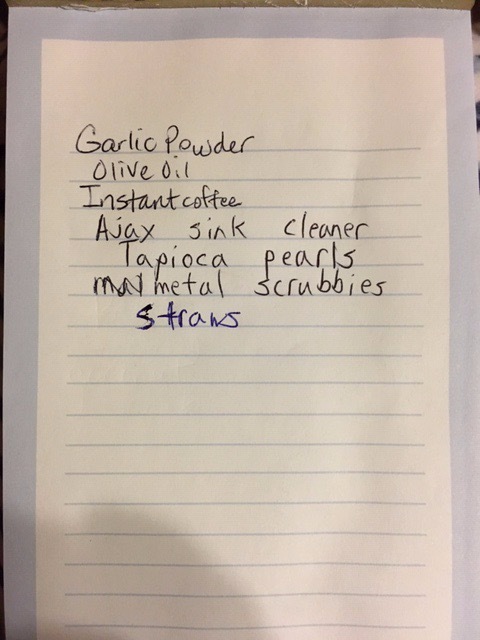 Garlic Powder
Olive Oil
Instant coffee
Ajax sink cleaner
Tapioca pearls
metal scrubbies
Straws